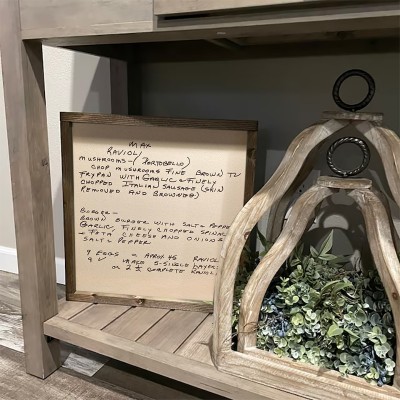 MAX
RAVIOLI
MUSHROOMS - (PORTOBELLO)
CHOP MUSHROOMS FINE BROWN TO
FRYPAN WITH GARLIC & FINELY
CHOPPED ITALIAN SAUSAGE (SKIN
REMOVED AND BROWNED)
BURGER -
BROWN BURGER WITH SALT & PEPPER
GARLIC, FINELY CHOPPED SPINAC
- FETA CHEESE AND ONIONS
SALT & PEPPER
9 EGGS = APROX 45 RAVIOL
9 MAKES 5-SINGLE LAYERS
OR 2 ½ COMPLETE RAVIOLI